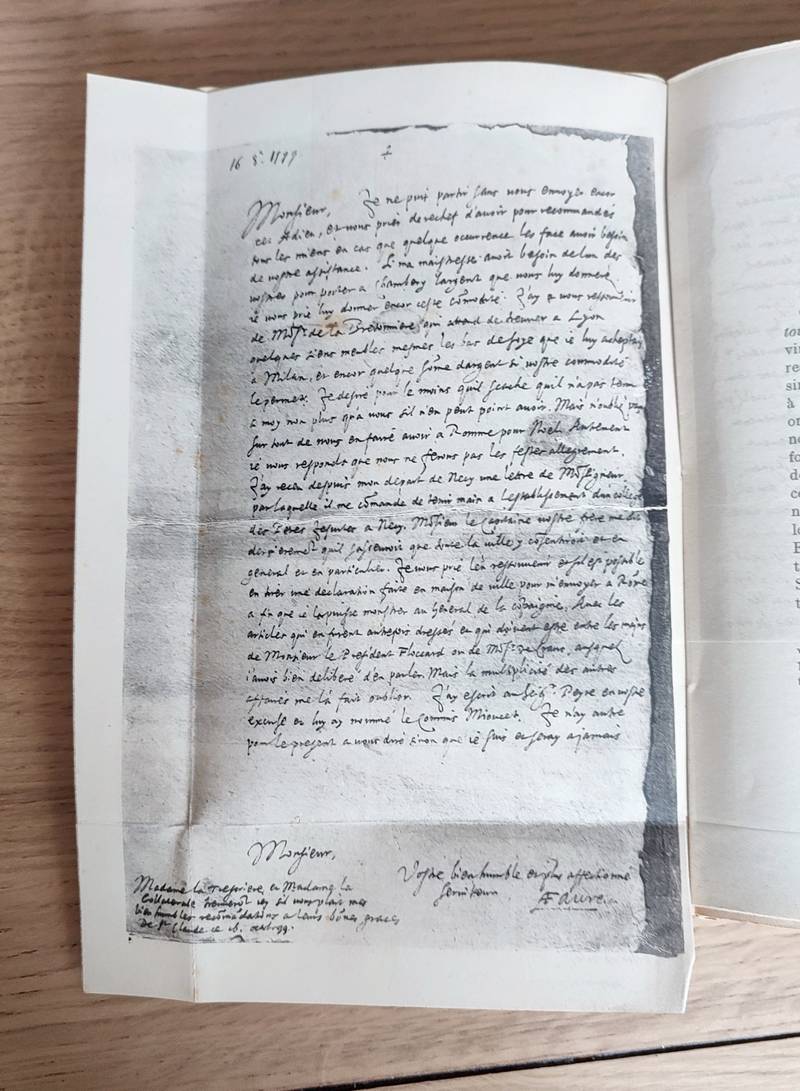 16 8.e 1599
+
Monsieur, Je ne puis partir sans vous envoyer encor
cest Adieu, et vous prier derechef d'avoir pour recommandés
tous les miens en cas que quelque occurrence les face avoir besoin
de vostre assistance. Si ma maistresse avoit besoin de lun des
vostres pour porter a Chambery largent que vous luy donneré
ie vous prie luy donner encor ceste cōmodité. J'ay a vous
de Mōsr. de la qui atend de treuver a Lyon
quelques siens meubles mesmes les bas de soye que ie luy
à Milan, et encor quelque sōme dargent si vostre commodité
le permet. Je desire pour le moins quil sçache quil n'a pas tenu
a moy non plus qu'a vous sil n'en peut point avoir. Mais n'oublié pas
sur tout de nous en faire avoir a Romme pour Noel Autrement
ie vous responds que nous ne ferons pas les festes allegrement.
J'ay receu despuis mon départ de Necy une lettre de Mōseigneur
par laquelle il me cōmande de tenir main a lestablissement dun
des Peres Jesuites a Necy. Mōsieur le Capitaine vostre frere me dit
dernieremēt quil sasseuroit que toute la ville y cōsentiroit et en
general et en particulier. Je vous prie len et sil est possible
en tirer une declaration faite en maison de ville pour m'envoyer a Rōme
a fin que ie la puisse monstrer au General de la cōpaignie, Avec les
articles qui en furent autrefois dressés et qui doivent estre entre les mains
de Monsieur le President Floccard ou de Mōsr. de Crans, ausquels
i'avois bien deliberé d'en parler, Mais la multiplicité des autres
affaires me la fait oublier. J'ay escrit au Peyre en vostre
excuse et luy ay nommé le Commis Je n'ay autre
pour le present a vous dire sinon que ie suis et seray a jamais
Monsieur,
Vostre bien humble et plus affectionné
serviteur AFavre
Madame la Tresoriere, et Madame la
Collaterale treuverōt icy sil vous plait mes
bien humbles recōmādations a leurs bōnes graces
De St. Claude ce 16. octob. 99.
tou
vi
re
si
à
o
n
fo
d
c
n
l
E
t
S
t